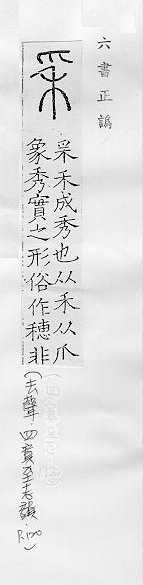 六書正譌
采
采禾成秀也从禾从爪
象秀實之形俗作穗非
(去聲.四寘至志韻.